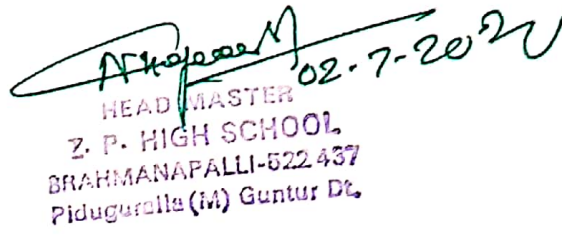 02-7-2020
HEAD MASTER
Z. P. HIGH SCHOOL
BRAHMANAPALLI-522 437
Piduguralla (M) Guntur Dt.